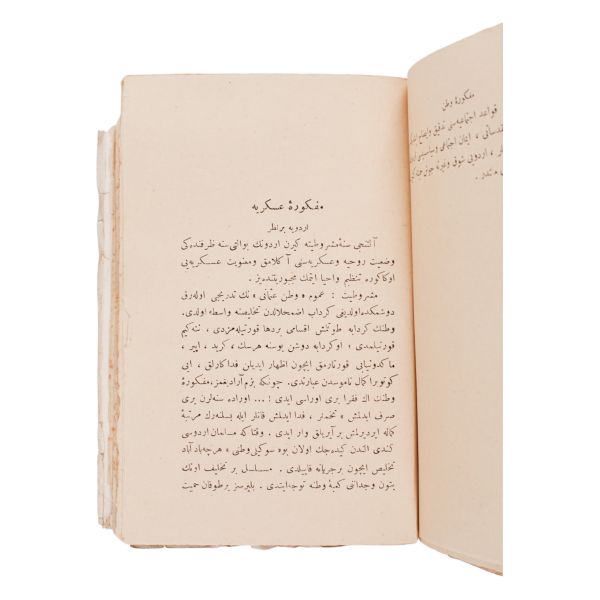 مفكورهٔ عسكريه
اردويه بر نظر
آلتنجى سنهٔ مشروطيته كيرن اردونك بو آلتى سنه ظرفنده كى
وضعيت روحيه وعسكريه سنى آ كلامق ومعنويت عسكريه يى
اوكا كوره تنظيم واحيا ايتمك مجبوريتنده يز .
مشروطيت : عموم « وطن عثمانى » نك تدريجى اوله رق
دوشمكده اولديغى كرداب اضمحلالدن تخليصنه واسطه اولدى.
وطنك كردابه طوتلش اقسامى بردها قورتيله مزدى ، نته كيم
قورتيلمدى ؛ اوكردابه دوشن بوسنه هرسك ، كريد ، اپير ،
ماكدونيايى قورتارمق ايچون اظهار ايديلن فداكارلق ، ايى
كوتو برا كمال ناموسدن عبارتدى. چونكه بزم آراديغمز، مفكورهٔ
وطنك اك فقرا برى اوراسى ايدى ! ... اوراده سنه لرن برى
صرف ايدلمش « تخملر ، فدا ايدلمش قانلر ايله بسلنه رك مرتبهٔ
كماله ايرديرلمش بر آيريلق وار ايدى . وقتاكه مسلمان اردوسى
كندى الندن كيده جك اولان بوه سوكيلى وطنى » هرچه باد آباد
تخليص ايچون بر جريانه قاپيلدى . مسلسل بر تخليف اونك
بتون وجداننى كعبهٔ وطنه توجه ايتدى . بليرسز بر طوفان حميت
مفكورهٔ وطن
قواعد اجتماعيه سنى تدقيق وايضاح
، ايمان اجتماعى وسياسيسنى
، اردويى شوق وغيرته